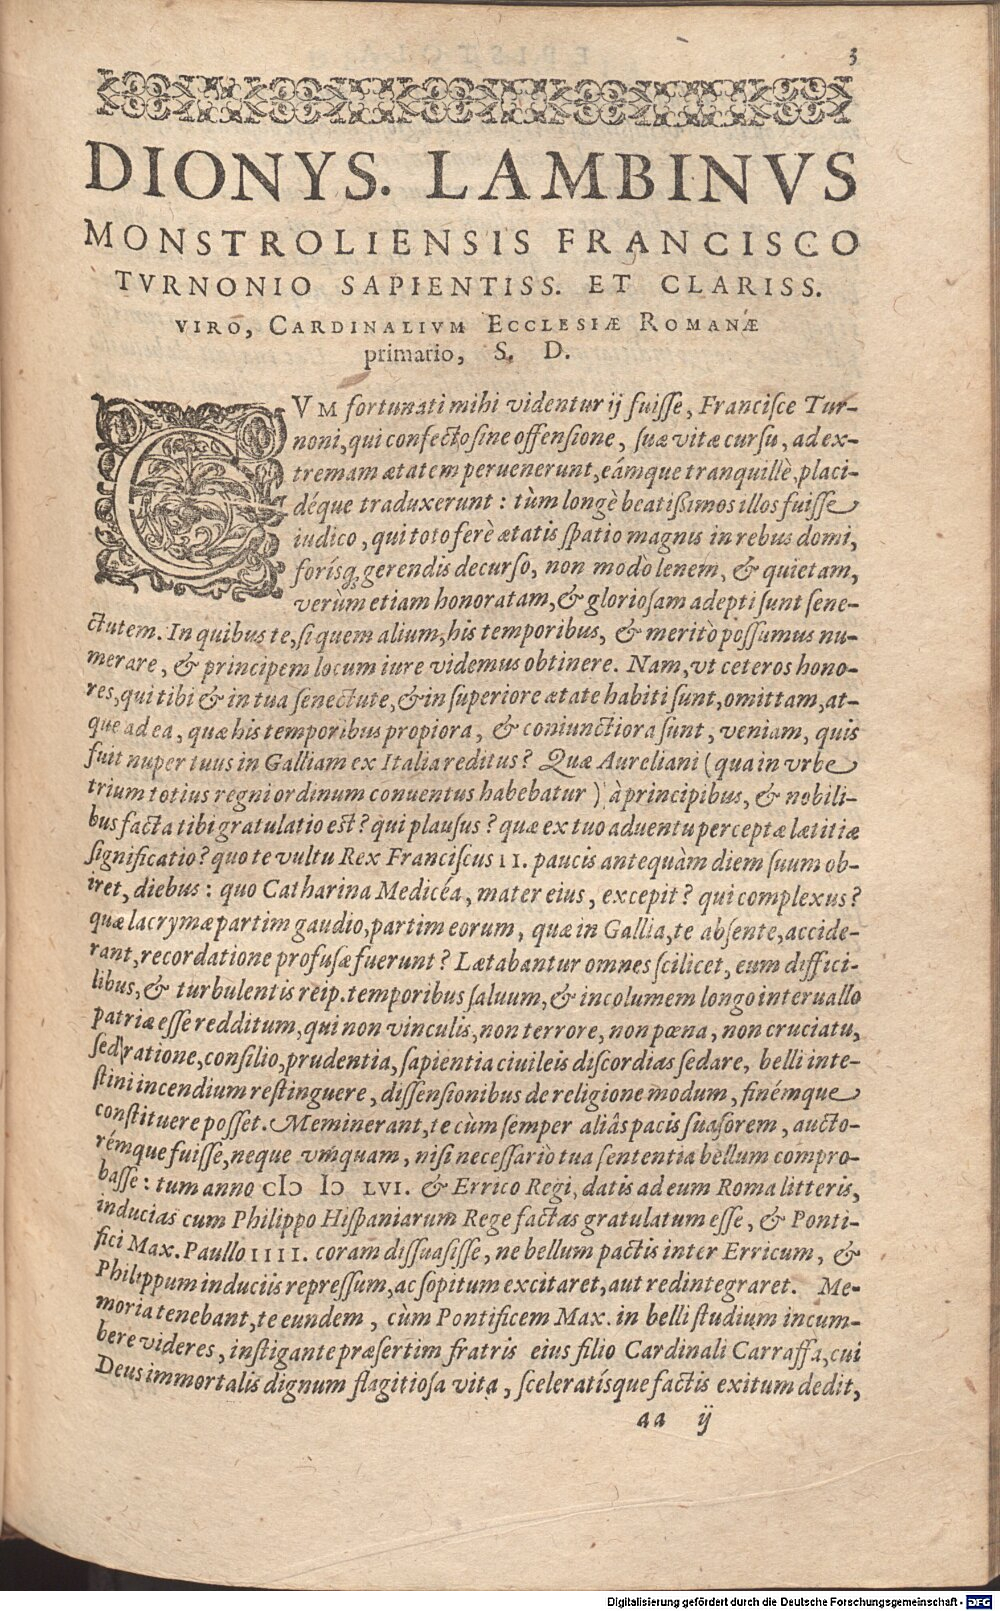 3
DIONYS. LAMBINVS
MONSTROLIENSIS FRANCISCO
TVRNONIO SAPIENTISS. ET CLARISS.
VIRO, CARDINALIVM ECCLESIÆ ROMANÆ
primario, S. D.
CVM fortunati mihi videntur ij fuisse, Francisce Tur-
noni, qui confecto sine offensione, suæ vitæ cursu, ad ex-
tremam ætatem peruenerunt, eámque tranquillè, placi-
déque traduxerunt: tùm longè beatißimos illos fuisse
iudico, qui toto ferè ætatis spatio magnis in rebus domi,
forísq; gerendis decurso, non modò lenem, & quietam,
verùm etiam honoratam, & gloriosam adepti sunt sene-
ctutem. In quibus te, si quem alium, his temporibus, & meritò possumus nu-
merare, & principem locum iure videmus obtinere. Nam, vt ceteros hono-
res, qui tibi & in tua senectute, & in superiore ætate habiti sunt, omittam, at-
que ad ea, quæ his temporibus propiora, & coniunctiora sunt, veniam, quis
fuit nuper tuus in Galliam ex Italia reditus? Quæ Aureliani (qua in vrbe
trium totius regni ordinum conuentus habebatur) à principibus, & nobili-
bus facta tibi gratulatio est? qui plausus? quæ ex tuo aduentu perceptæ lætitiæ
significatio? quo te vultu Rex Franciscus II. paucis antequàm diem suum ob-
iret, diebus: quo Catharina Medicéa, mater eius, excepit? qui complexus?
quæ lacrymæ partim gaudio, partim eorum, quæ in Gallia, te absente, accide-
rant, recordatione profusæ fuerunt? Lætabantur omnes scilicet, eum diffici-
libus, & turbulentis reip. temporibus saluum, & incolumem longo interuallo
patriæ esse redditum, qui non vinculis, non terrore, non pœna, non cruciatu,
sed ratione, consilio, prudentia, sapientia ciuileis discordias sedare, belli inte-
stini incendium restinguere, dissensionibus de religione modum, finémque
constituere posset. Meminerant, te cùm semper aliâs pacis suasorem, aucto-
rémque fuisse, neque vmquam, nisi necessariò tua sententia bellum compro-
basse: tum anno CIↃ IↃ LVI. & Errico Regi, datis ad eum Roma litteris,
inducias cum Philippo Hispaniarum Rege factas gratulatum esse, & Ponti-
fici Max. Paullo IIII. coram dissuasisse, ne bellum pactis inter Erricum, &
Philippum induciis repressum, ac sopitum excitaret, aut redintegraret. Me-
moria tenebant, te eundem, cùm Pontificem Max. in belli studium incum-
bere videres, instigante præsertim fratris eius filio Cardinali Carraffa, cui
Deus immortalis dignum flagitiosa vita, sceleratísque factis exitum dedit,
aa ij
Digitalisierung gefördert durch die Deutsche Forschungsgemeinschaft - DFG